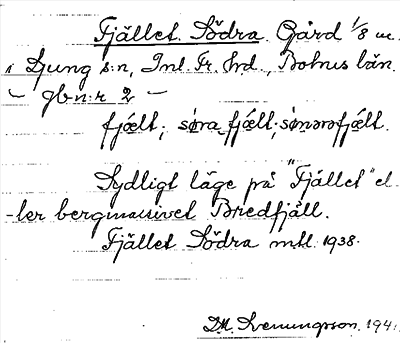 Fjället Södra. Gård 1/8 m.
i Ljung s:n, Inl. Fr. hd., Bohus län.
— gbn:r 2 —
fjǽlt; søra fjǽlt; sønərəfjǽlt.
Sydligt läge på "Fjället" el-
-ler bergmassivet Bredfjäll.
Fjället Södra mtl. 1938.
D.H. Svenungsson. 194